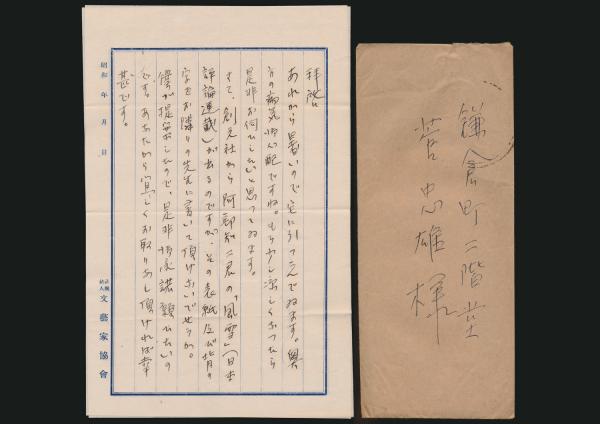 拝啓
あれから暑いので宅に引っこんでゐます。奥
方の病気御心配ですね。もう少し涼しくなったら
是非お伺ひしたいと思ってゐます。
さて、創元社から阿部知二君の「風雪」(日本
評論連載)が出るのですが、その表紙及び背の
字をお隣りの先生に書いて頂けないでせうか。
僕が提案したので、是非御承諾願ひたいの
です。あなたから宜しくお取りなし頂ければ幸
甚です。
昭和 年 月 日
社団法人 文藝家協會
鎌倉町二階堂
菅忠雄様